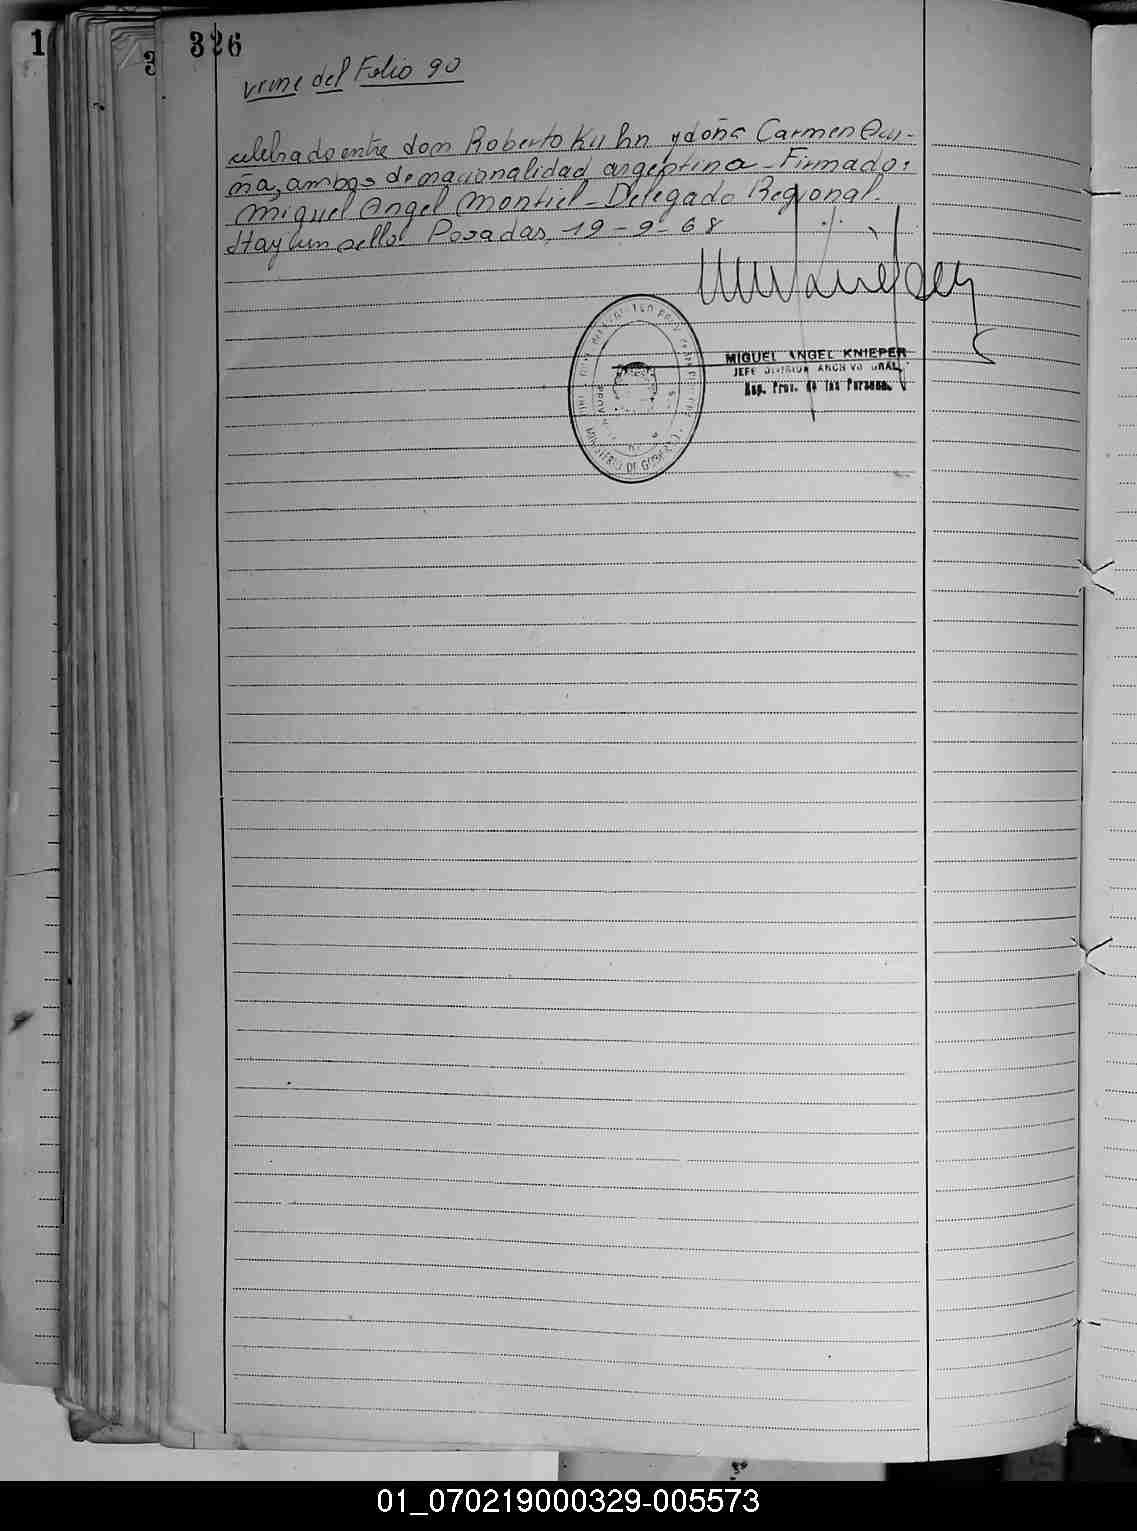 1
3
326
viene del Folio 90
celebrado entre don Roberto Kuhn y doña Carmen Acu-
ña, ambos de nacionalidad argentina - Firmado:
Miguel Angel Montiel - Delegado Regional.
Hay un sello. Posadas, 19-9-68
MIGUEL ANGEL KNIEPER
JEFE DIVISION ARCHIVO GRAL.
Reg. Prov. de las Personas.
MINISTERIO DE GOBIERNO
01_070219000329-005573